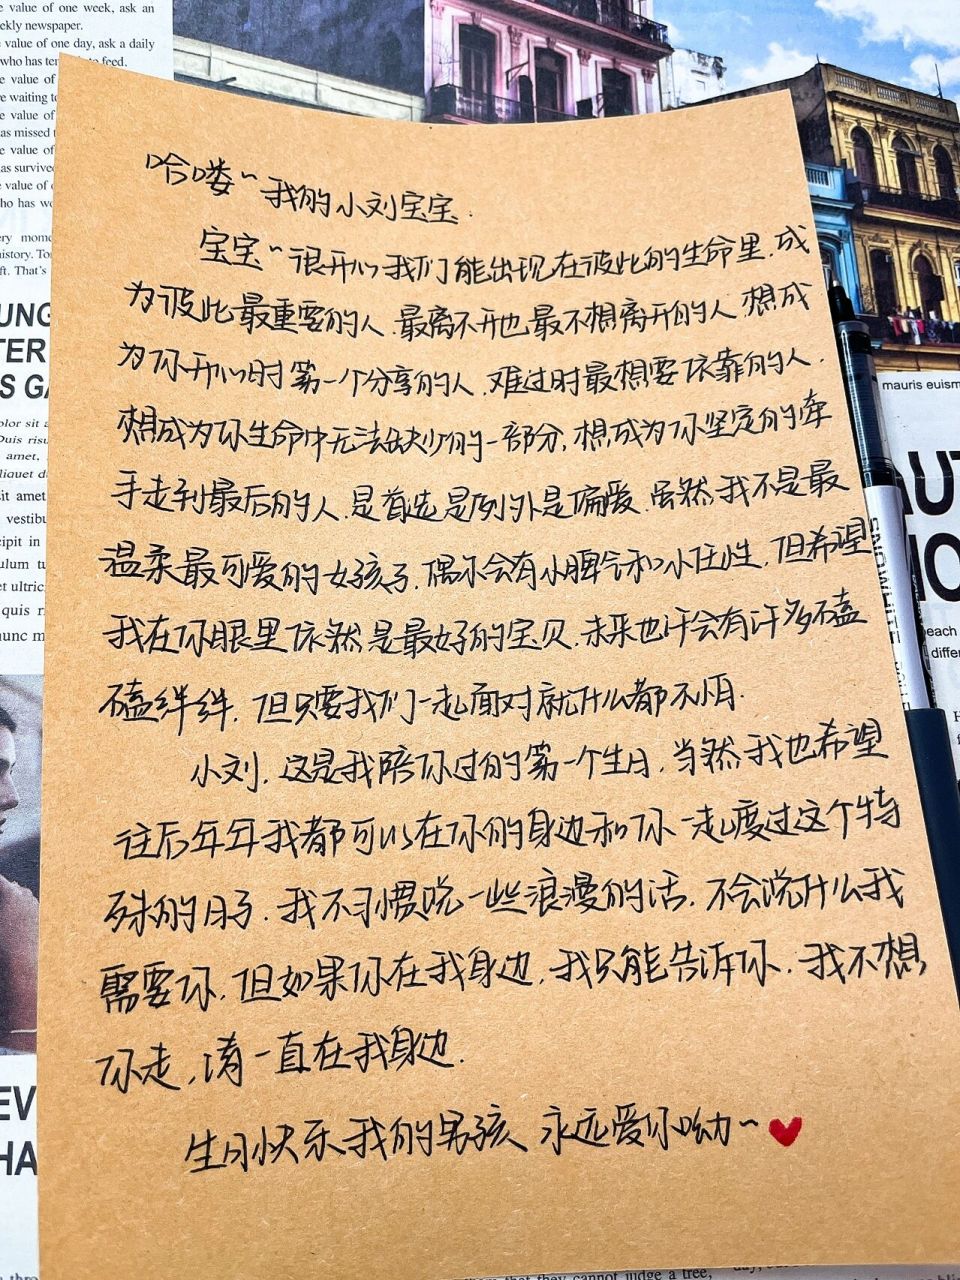 value of one week, ask an
ekly newspaper.
value of one day, ask a daily
who has ten to feed.
e value of
e waiting to
e value of
as missed
e value of
as survive
e value of
ho has wo
ery mom
istory. To
ft. That's
UNG
TER
S GA
olor sit a
Duis risu
amet,
liquet d
sit amet
vestibu
cipit in
ulum tu
et ultric
quis r
nunc m
EV
HA
哈喽~我的小刘宝宝.
宝宝~很开心我们能出现在彼此的生命里，成
为彼此最重要的人，最离不开也最不想离开的人，想成
为你开心时第一个分享的人，难过时最想要依靠的人.
想成为你生命中无法缺少的一部分，想成为你坚定的牵
手走到最后的人，是首选是例外是偏爱，虽然我不是最
温柔最可爱的女孩子，偶尔会有小脾气和小任性，但希望
我在你眼里依然是最好的宝贝，未来也许会有许多磕
磕绊绊，但只要我们一起面对就什么都不怕.
小刘，这是我陪你过的第一个生日，当然我也希望
往后年年我都可以在你的身边和你一起度过这个特
殊的日子，我不习惯说一些浪漫的话，不会说什么我
需要你，但如果你在我身边，我只能告诉你，我不想
你走，请一直在我身边.
生日快乐我的男孩 永远爱你呦~
mauris euism
SNOWHITE
AUT
beach
differe
that they cannot judge a tree,